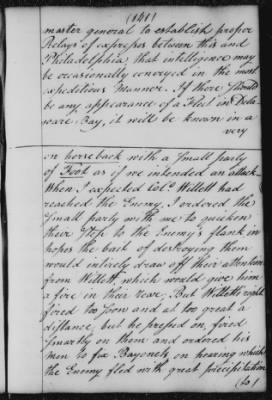 (141)
master general to establish proper
Relays of expresses between this and
Philadelphia, that intelligence may
be occasionally conveyed in the most
expeditious Manner. If there should
be any appearance of a Fleet in Dela-
ware-Bay, it will be known in a
very
on horseback with a small party
of Foot as if we intended an attack
When I expected Colo. Willett had
reached the Enemy, I ordered the
Small party with me to quicken
their Step to the Enemy's flank in
hopes the bait of destroying them
would intirely draw off their attention
from Willett, which would give him
a fire in their rear, But Willett's right
fored too soon and at too great a
distance, but he pressed on, fired
smartly on them and ordered his
Men to fix Bayonets on hearing which
the Enemy fled with great precipitation
(to)